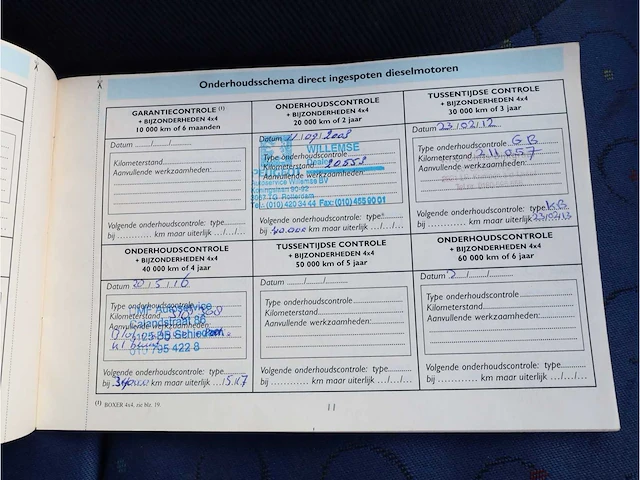 Onderhoudsschema direct ingespoten dieselmotoren
GARANTIECONTROLE (1)
+ BIJZONDERHEDEN 4x4
10 000 km of 6 maanden
Datum ....../....../......
Kilometerstand
Aanvullende werkzaamheden:
Volgende onderhoudscontrole: type
bij ............ km maar uiterlijk .../.../...
ONDERHOUDSCONTROLE
+ BIJZONDERHEDEN 4x4
20 000 km of 2 jaar
Datum 11/09/2008
WILLEMSE
Type onderhoudscontrole
Dealer
Kilometerstand 20558
Aanvullende werkzaamheden:
Autoservice Willemse BV
Koningslaan 90-92
3067 TG Rotterdam
Tel.: (010) 420 34 44 Fax: (010) 455 90 01
Volgende onderhoudscontrole: type
bij 40.000 km maar uiterlijk .../.../...
TUSSENTIJDSE CONTROLE
+ BIJZONDERHEDEN 4x4
30 000 km of 3 jaar
Datum 23/02/12
Type onderhoudscontrole G B
Kilometerstand 211.057
Aanvullende werkzaamheden:
Volgende onderhoudscontrole: type K.B
bij ............ km maar uiterlijk 23/02/13
ONDERHOUDSCONTROLE
+ BIJZONDERHEDEN 4x4
40 000 km of 4 jaar
Datum 20/5/16
Type onderhoudscontrole
MF Autoservice
Kilometerstand
Aanvullende werkzaamheden:
3125 BB Schiedam
010 795 422 8
Volgende onderhoudscontrole: type
bij km maar uiterlijk
TUSSENTIJDSE CONTROLE
+ BIJZONDERHEDEN 4x4
50 000 km of 5 jaar
Datum ....../....../......
Type onderhoudscontrole
Kilometerstand
Aanvullende werkzaamheden:
Volgende onderhoudscontrole: type
bij ............ km maar uiterlijk .../.../...
ONDERHOUDSCONTROLE
+ BIJZONDERHEDEN 4x4
60 000 km of 6 jaar
Datum ....../....../......
Type onderhoudscontrole
Kilometerstand
Aanvullende werkzaamheden:
Volgende onderhoudscontrole: type
bij ............ km maar uiterlijk .../.../...
(1) BOXER 4x4, zie blz. 19.
11